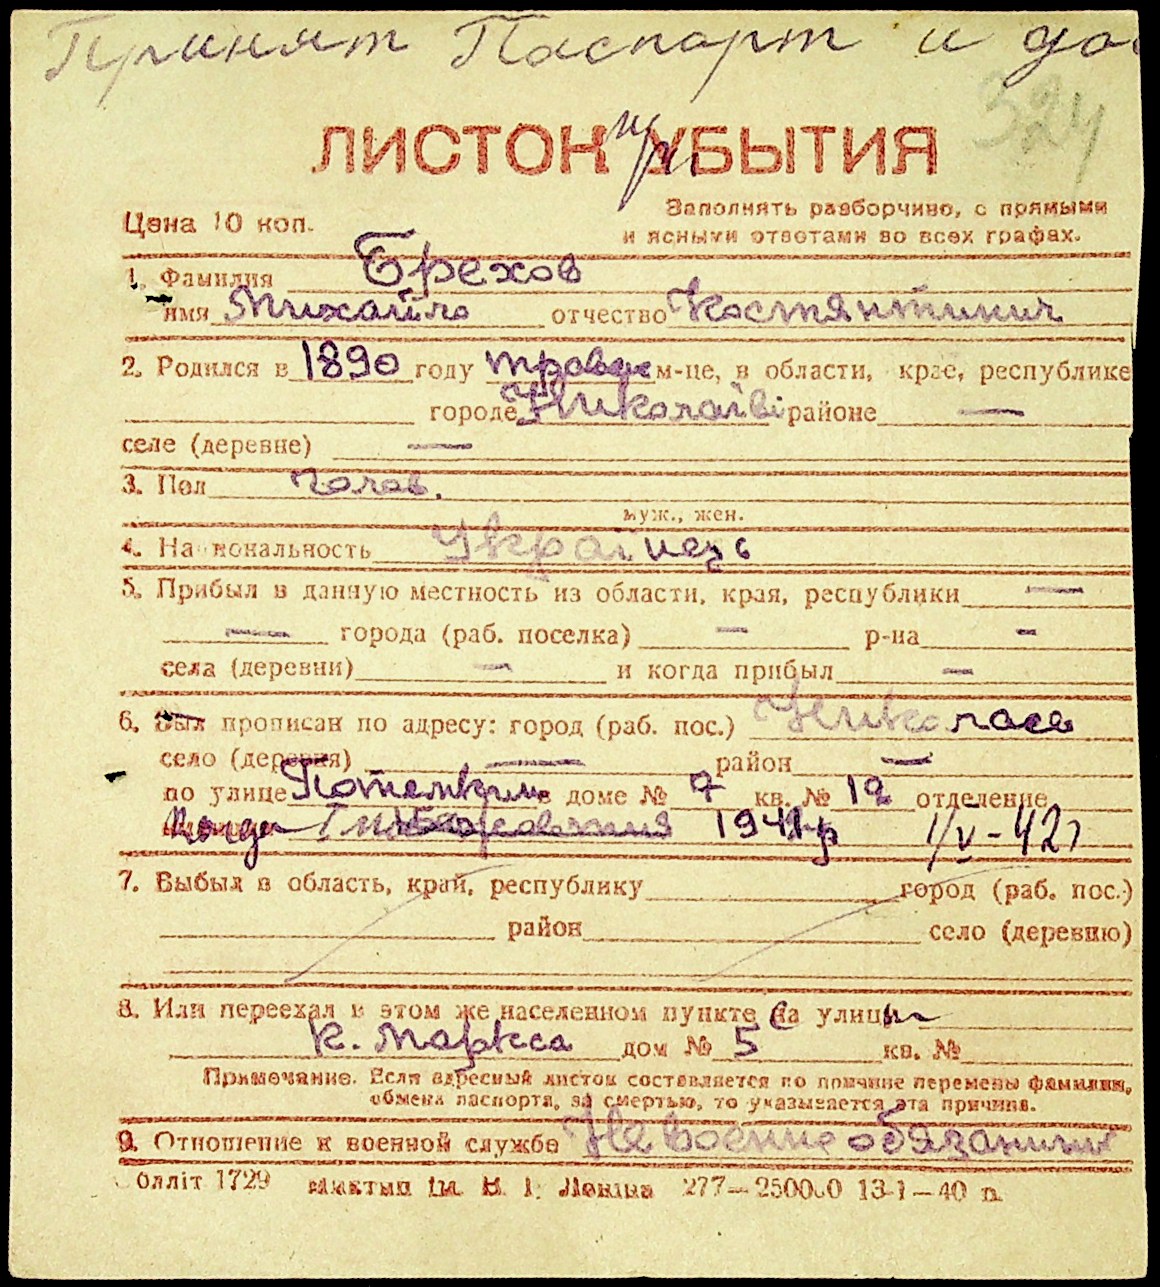 Принят Паспорт и
324
ЛИСТОК УБЫТИЯ
при
Цена 10 коп.
Заполнять разборчиво, с прямыми
и ясными ответами во всех графах.
1. Фамилия Брехов
имя Михайло отчество Костянтинич
2. Родился в 1890 году м-це, в области, крае, республике
городе Николаїві районе —
селе (деревне) —
3. Пол чолов.
муж., жен.
4. Национальность Українець
5. Прибыл в данную местность из области, края, республики —
— города (раб. поселка) — р-на —
села (деревни) — и когда прибыл —
6. Был прописан по адресу: город (раб. пос.) Николаев
село (деревня) — район —
по улице Потемкин в доме № 7 кв. № 12 отделение
1941 г 1/V-42 г
7. Выбыл в область, край, республику город (раб. пос.)
район село (деревню)
8. Или переехал в этом же населенном пункте с улицы
К. Маркса дом № 5 кв. №
Примечание. Если адресный листок составляется по причине перемены фамилии,
обмена паспорта, за смертью, то указывается эта причина.
9. Отношение к военной службе Не военнообязанный
олліт 1729 ім. В. І. Леніна 277—250000 13-1—40 п.